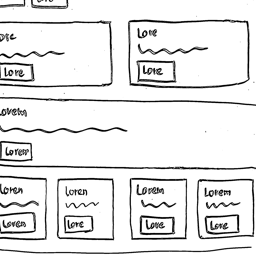 Lore
Lore
Lore
Lore
Lorem
Lorem
Loren
Loren
Lorem
Lorem
Loren
Lore
Lore
Lore